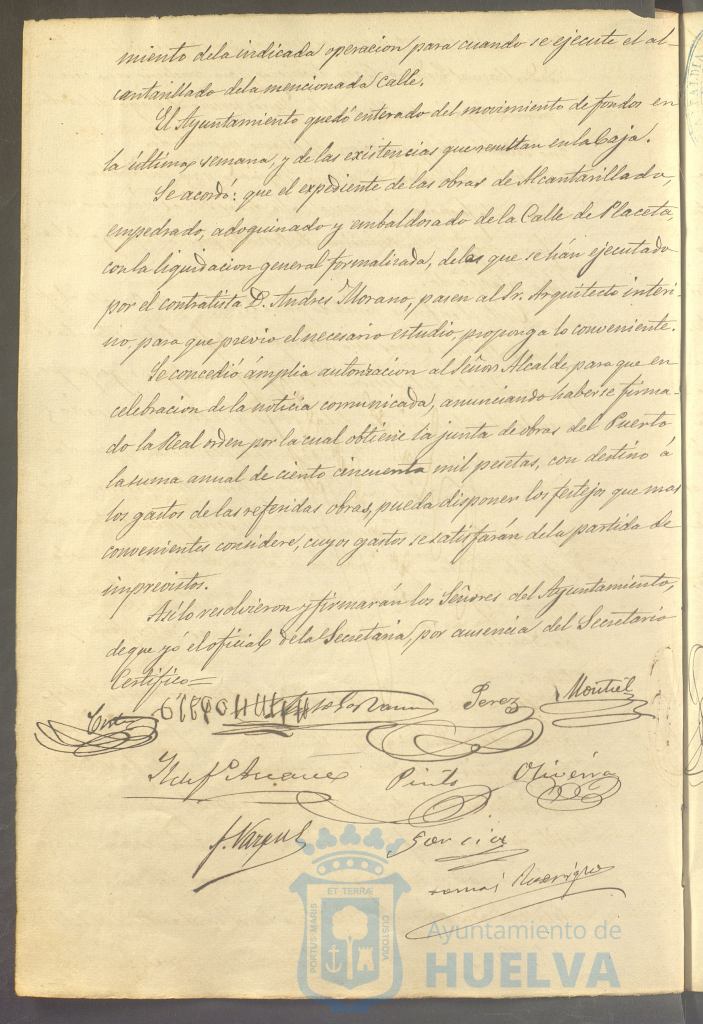 miento dela indicada operacion para cuando se ejecute el al-
cantarillado dela mencionada Calle.
El Ayuntamiento quedó enterado del movimiento de fondos en
la última semana, y de las existencias que resultan en la Caja.
Se acordó: que el expediente de las obras de Alcantarillado,
empedrado, adoquinado y embaldosado de la Calle de Placeta,
con la liquidacion general formalizada, delas que se hán ejecutado
por el contratista D. Andres Morano, pasen al Sr. Arquitecto interi-
no, para que previo el necesario estudio, proponga lo conveniente.
Se concedió ámplia autorizacion al Señor Alcalde, para que en
celebracion de la noticia comunicada, anunciando haberse firma-
do la Real orden por la cual obtiene la junta de obras del Puerto
la suma anual de ciento cincuenta mil pesetas, con destino á
los gastos de las referidas obras, pueda disponer los festejos que mas
convenientes considere, cuyos gastos se satisfarán dela partida de
imprevistos.
Asi lo resolvieron y firmarán los Señores del Ayuntamiento,
de que yó el oficial de la Secretaria, por ausencia del Secretario
Certifico=
Perez Montiel
Pinto Oliveira
J. Vazquez Garcia
Tomas Rodriguez
ET TERRÆ
PORTUS MARIS
CUSTODIA
Ayuntamiento de
HUELVA